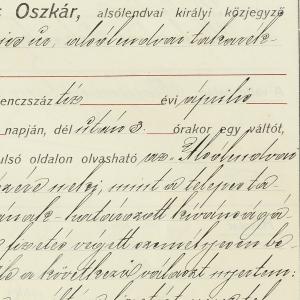 Oszkár, alsólendvai királyi közjegyző
alsólendvai takarék-
enczszáz tíz évi április
napján, dél után 3 órakor egy váltót,
ulsó oldalon olvasható az Alsólendvai
mint a teljes ta-
határozott kivánságá
fizetés végett személyesen be
a következő választ nyertem: